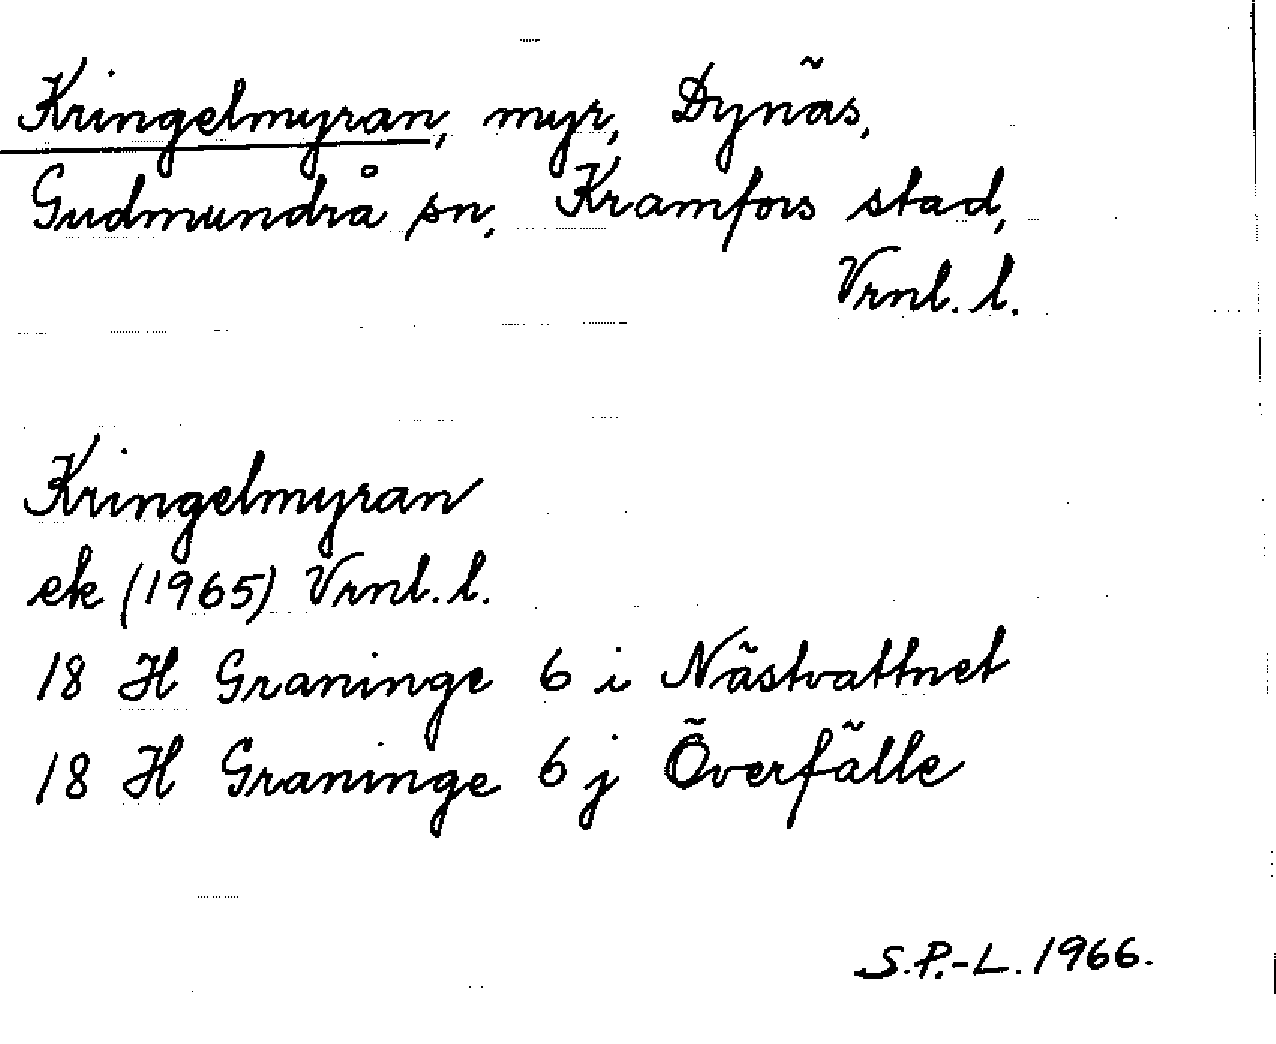 Kringelmyran, myr, Dynäs,
Gudmundrå sn, Kramfors stad,
Vrnl. l.
Kringelmyran
ek (1965) Vrnl. l.
18 H Graninge 6 i Nästvattnet
18 H Graninge 6 j Överfälle
S.P.-L. 1966.